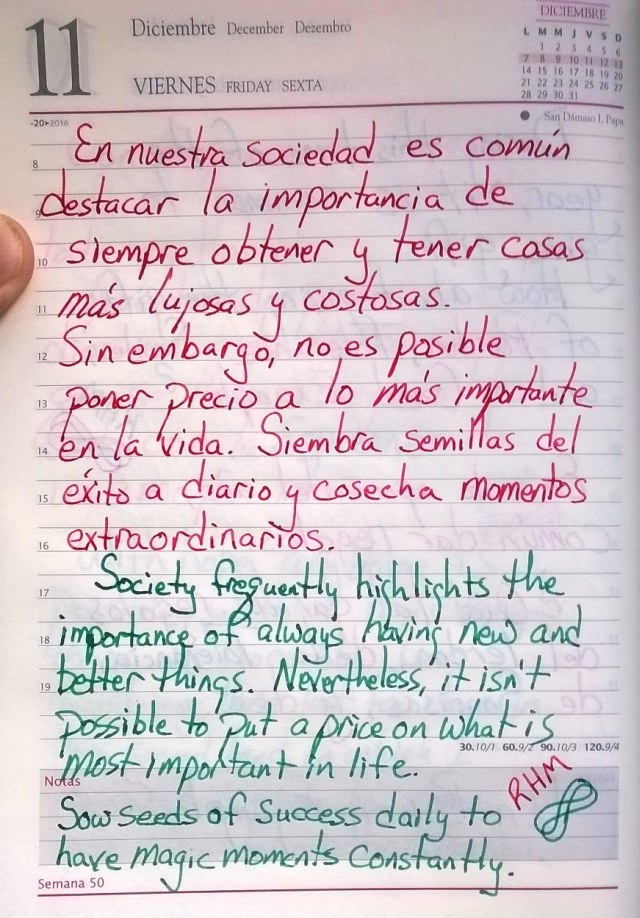 11
Diciembre December Dezembro
VIERNES FRIDAY SEXTA
DICIEMBRE
L M M J V S D
1 2 3 4 5 6
7 8 9 10 11 12 13
14 15 16 17 18 19 20
21 22 23 24 25 26 27
28 29 30 31
-20▸2016
San Dámaso I, Papa
8 En nuestra sociedad es común
9 destacar la importancia de
10 siempre obtener y tener casas
11 más lujosas y costosas.
12 Sin embargo, no es posible
13 poner precio a lo más importante
14 en la vida. Siembra semillas del
15 éxito a diario y cosecha momentos
16 extraordinarios.
17 Society frequently highlights the
18 importance of always having new and
19 better things. Nevertheless, it isn't
possible to put a price on what is
30.10/1 60.9/2 90.10/3 120.9/4
most important in life.
Notas
RHM
Sow seeds of success daily to
have magic moments constantly.
Semana 50